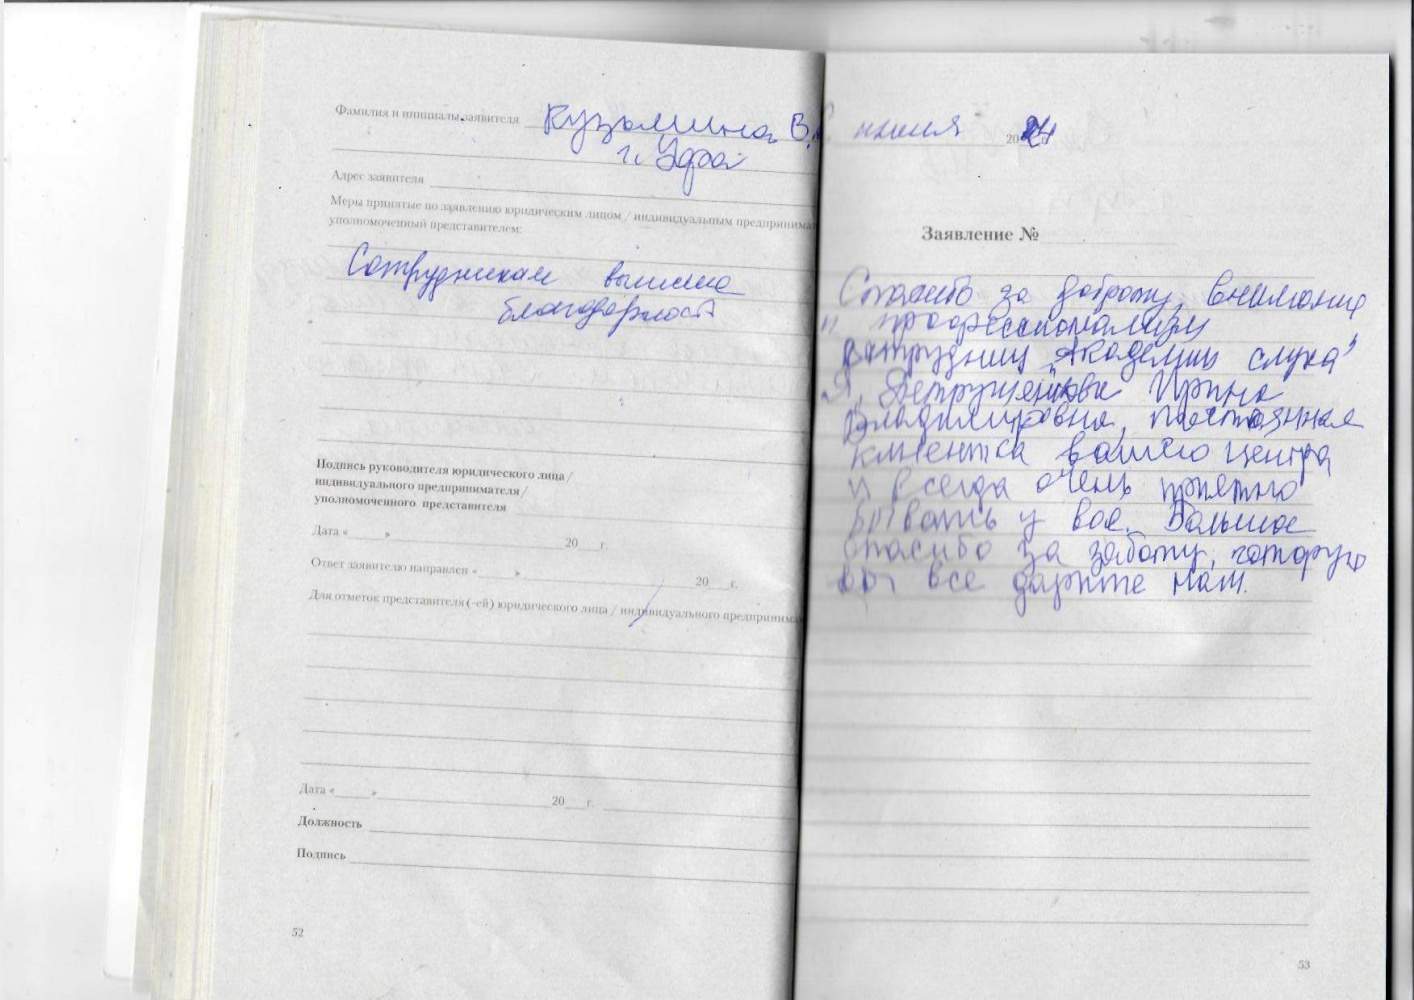 Фамилия и инициалы заявителя Кузьмина В.
г. Уфа
Адрес заявителя
Меры принятые по заявлению юридическим лицом / индивидуальным предпринимат
уполномоченный представителем:
Сотрудникам вынесена
благодарность
Подпись руководителя юридического лица /
индивидуального предпринимателя /
уполномоченного представителя
Дата «____» ____ 20___г.
Ответ заявителю направлен «____» ____ 20___г.
Для отметок представителя (-ей) юридического лица / индивидуального предпринима
Дата «____» ____ 20___г.
Должность
Подпись
52
июня 2024
Заявление №
Спасибо за доброту, внимание
и профессионализм
сотрудниц "Академии слуха"
Я, Ирина
Владимировна, постоянная
клиентка вашего центра
и всегда очень приятно
бывать у вас. Большое
спасибо за заботу, которую
вы все дарите нам.
53